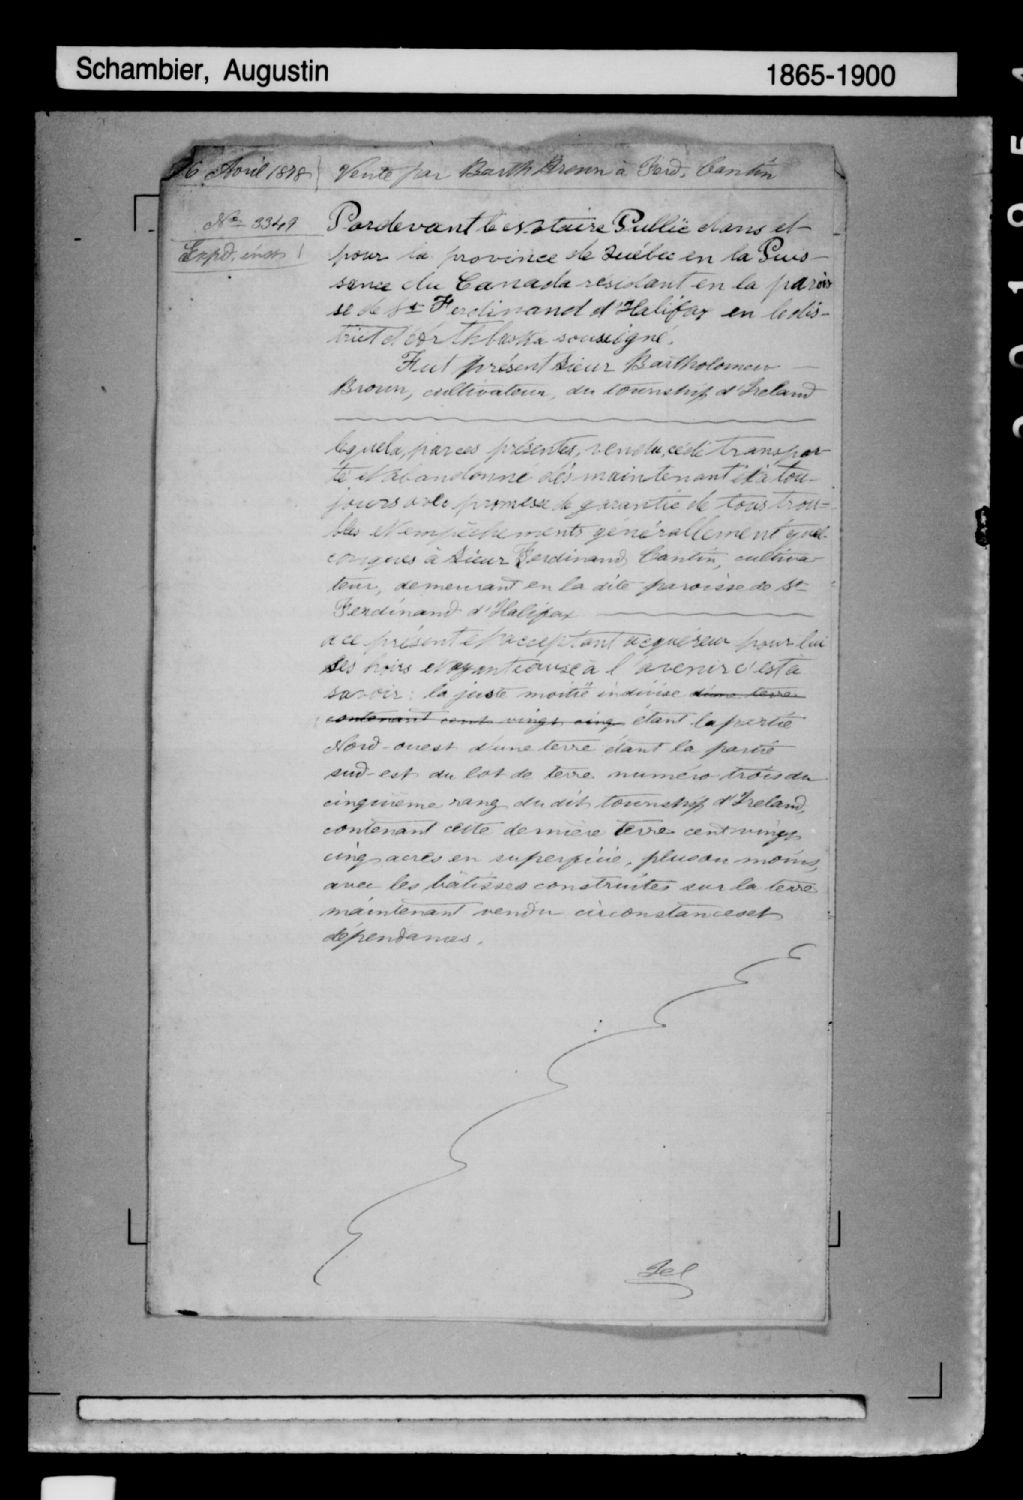 Schambier, Augustin 1865-1900
6 Avril 1878 Vente par Barth Brown à Ferd. Cantin
No 3349
Expd. inst
Pardevant le Notaire Public dans et
pour la province de Québec en la Puis-
sance du Canada résidant en la parois
se de St Ferdinand d'Halifax en le dis-
trict d'Arthabaska soussigné.
Fut présent Sieur Bartholomew
Brown, cultivateur, du township d'Ireland
lequel a, par ces présentes, vendu, cédé transpor
té et abandonné dès maintenant et à tou-
jours avec promesse de garantie de tous trou-
bles et empêchements générallement quel
conques à Sieur Ferdinand Cantin, cultiva
teur, demeurant en la dite paroisse de St
Ferdinand d'Halifax
a ce présent et acceptant acquéreur pour lui
ses hoirs et ayant cause à l'avenir c'est à
savoir: la juste moitié indivise d'une terre
contenant cent vingt cinq étant la partie
Nord-ouest d'une terre étant la partie
sud-est du lot de terre numéro trois du
cinquième rang du dit township d'Ireland,
contenant cette dernière terre cent vingt
cinq acres en superficie, plus ou moins,
avec les bâtisses construites sur la terre
maintenant vendu circonstances et
dépendances.